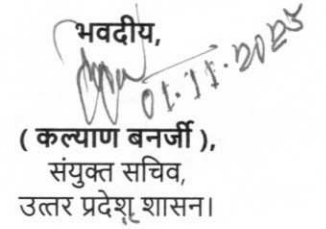 भवदीय,
01.11.2025
( कल्याण बनर्जी ),
संयुक्त सचिव,
उत्तर प्रदेश शासन।